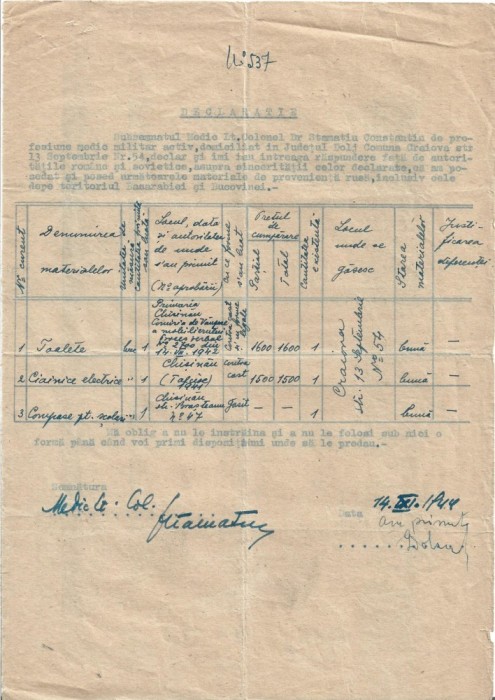 No 537
DECLARATIE
Subsemnatul Medic Lt.Colonel Dr Stamatiu Constantin de pro
fesiune medic militar activ,domiciliat in Județul Dolj Comuna Craiova st:
13 Septembrie Nr.54,declar și imi iau intreaga răspundere față de autori-
tățile române și sovietice, asupra sincerității celor declarate,că am po-
sedat și posed următoarele materiale de proveniență rusă,inclusiv cele
depe teritoriul Basarabiei și Bucovinei.-
No curent
Denumirea materialelor
Unitatea de
Cantitatea primită sau luată
Locul, data și autoritatea de unde s'au primit (No aprobării)
Cu ce forme s'au luat
Prețul de cumpărare
Parțial
Total
Cantitatea existentă
Locul unde se găsesc
Starea materialelor
Justificarea diferenței
1 Toalete buc 1 Primăria Chisinău Comisia de Vânzare a mobilierului Proces verbal No 2780 din 14.VII.1942 1600 1600 1 Craiova str. 13 Septembrie No 54 bună –
2 Ciainice electrice „ 1 Chisinău 1941 contra cost 1500 1500 1 bună –
3 Compase pt. școlari „ 1 Chisinău str. No 47 – – 1 bună –
Mă oblig a nu le instrăina și a nu le folosi sub nici o
formă până când voi primi dispozițiuni unde să le predau.-
Semnătura
Medic Lt. Col. Stamatiu
Data 14.XI.1944
Am primit